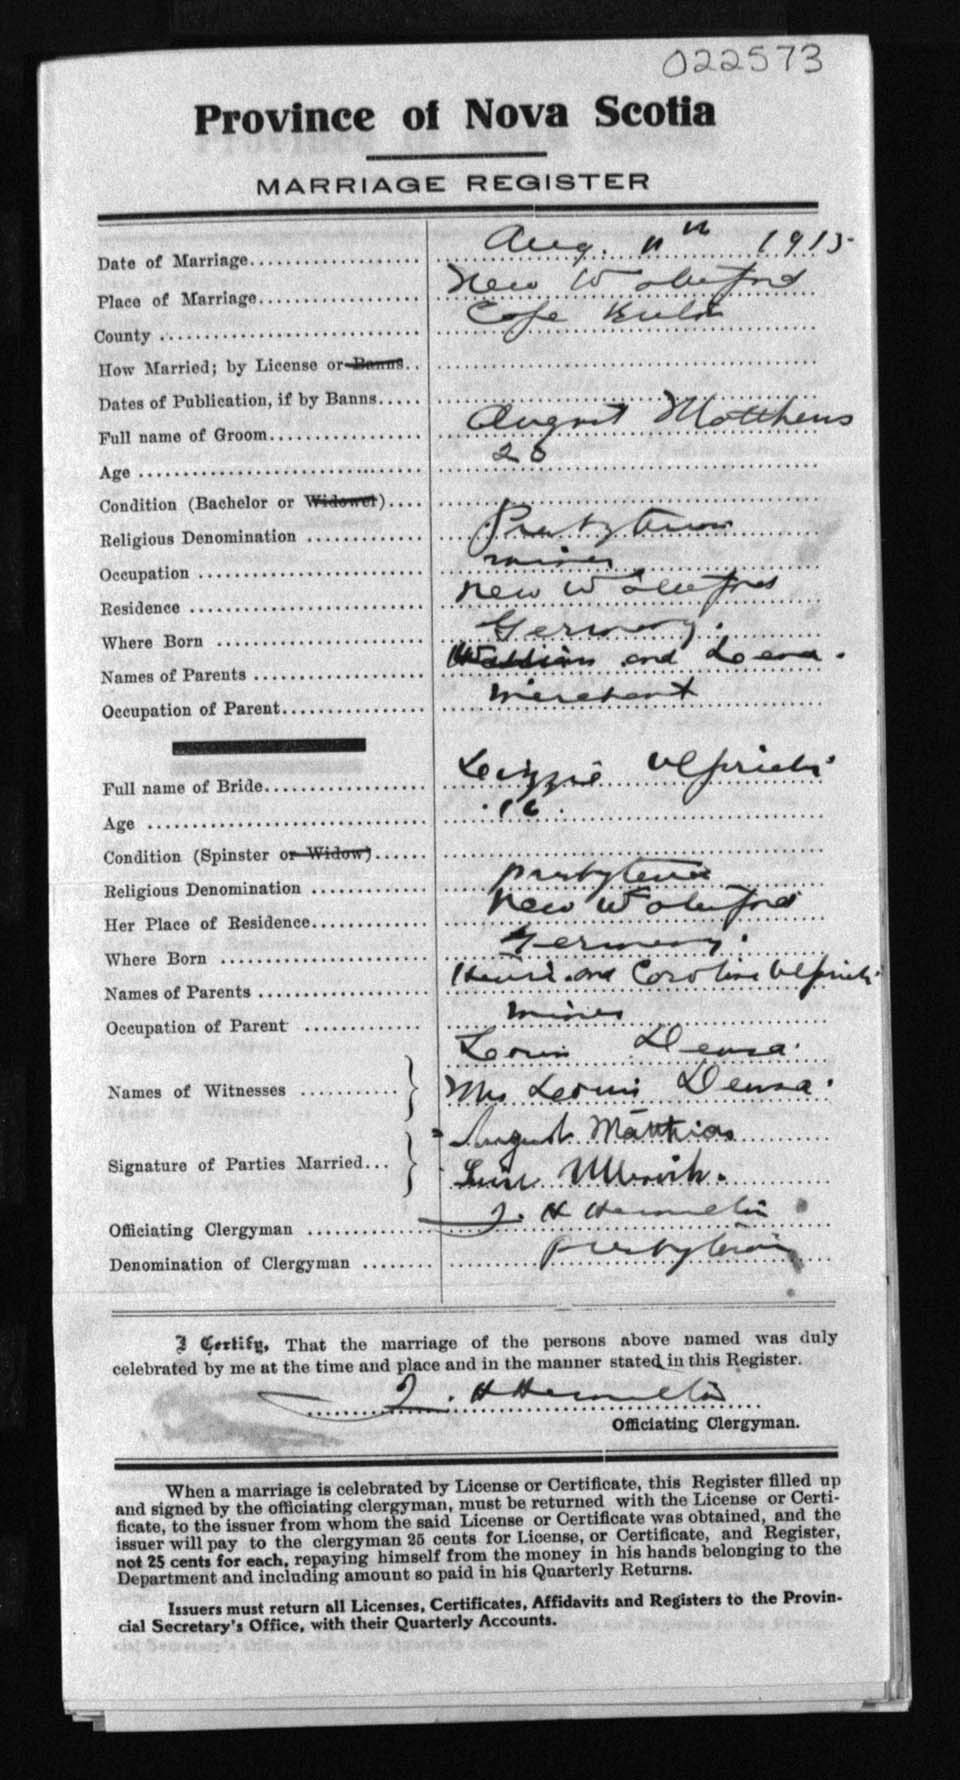 022573
Province of Nova Scotia
MARRIAGE REGISTER
Date of Marriage Aug. 11th 1915
Place of Marriage New Waterford
County Cape Breton
How Married; by License or Banns
Dates of Publication, if by Banns
Full name of Groom August Matthews
Age 26
Condition (Bachelor or Widower)
Religious Denomination Presbyterian
Occupation miner
Residence New Waterford
Where Born Germany.
Names of Parents and Lena.
Occupation of Parent merchant
Full name of Bride Lizzie
Age
Condition (Spinster or Widow)
Religious Denomination Presbyterian
Her Place of Residence New Waterford
Where Born Germany.
Names of Parents and Caroline
Occupation of Parent miner
Names of Witnesses Louis
Mrs Louis
Signature of Parties Married August Matthias
Officiating Clergyman
Denomination of Clergyman Presbyterian
I Certify, That the marriage of the persons above named was duly
celebrated by me at the time and place and in the manner stated in this Register.
Officiating Clergyman.
When a marriage is celebrated by License or Certificate, this Register filled up
and signed by the officiating clergyman, must be returned with the License or Certi-
ficate, to the issuer from whom the said License or Certificate was obtained, and the
issuer will pay to the clergyman 25 cents for License, or Certificate, and Register,
not 25 cents for each, repaying himself from the money in his hands belonging to the
Department and including amount so paid in his Quarterly Returns.
Issuers must return all Licenses, Certificates, Affidavits and Registers to the Provin-
cial Secretary's Office, with their Quarterly Accounts.